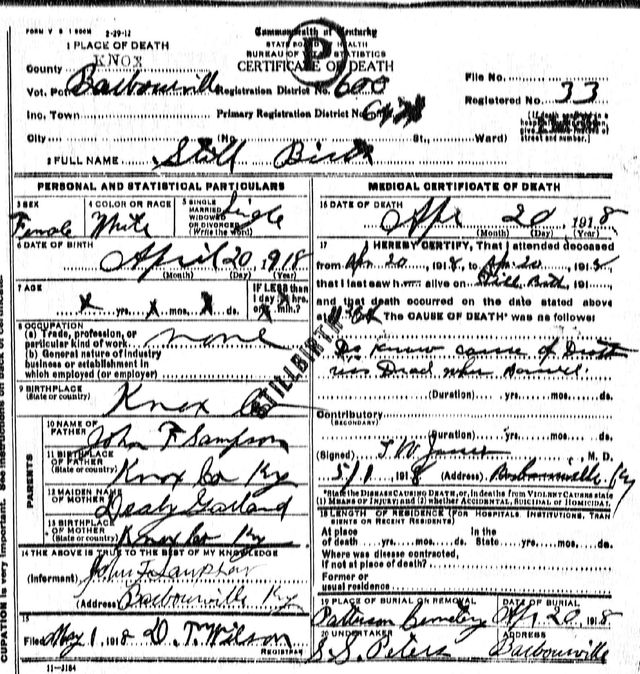 FORM V S 1 500M 2-29-12
Commonwealth of Kentucky
STATE BOARD HEALTH
BUREAU OF VITAL STATISTICS
CERTIFICATE OF DEATH
1 PLACE OF DEATH
KNOX
County
Vot. Pct. Barbourville Registration District No. 600
File No.
Registered No. 33
Inc. Town Primary Registration District No.
City (No. St., Ward)
(If death occurred in a
street and number.)
2 FULL NAME Still Birth
PERSONAL AND STATISTICAL PARTICULARS
3 SEX
Female
4 COLOR OR RACE
White
5 SINGLE
MARRIED
WIDOWED
OR DIVORCED
(Write the word)
Single
6 DATE OF BIRTH
April 20, 1918
(Month) (Day) (Year)
7 AGE
IF LESS than
1 day X hrs.
or min.?
X yrs. X mos. X ds.
8 OCCUPATION
(a) Trade, profession, or
particular kind of work none
(b) General nature of industry
business or establishment in
which employed (or employer)
9 BIRTHPLACE
(State or country) Knox Co
PARENTS
10 NAME OF
FATHER John F Sampson
11 BIRTHPLACE
OF FATHER
(State or country) Knox Co Ky
12 MAIDEN NAME
OF MOTHER Dealy Garland
13 BIRTHPLACE
OF MOTHER
(State or country) Knox Co Ky
14 THE ABOVE IS TRUE TO THE BEST OF MY KNOWLEDGE
(Informant) John F Sampson
(Address) Barbourville Ky
15
Filed May 1, 1918 D. T. Wilson
REGISTRAR
11—3184
STILLBIRTH
MEDICAL CERTIFICATE OF DEATH
16 DATE OF DEATH
Apr 20 1918
(Month) (Day) (Year)
17 I HEREBY CERTIFY, That I attended deceased
from Apr 20, 1918, to Apr 20, 1918
that I last saw h alive on Still Birth, 191
and that death occurred on the date stated above
at M. The CAUSE OF DEATH* was as follows
know cause of Death
was Dead when
(Duration) yrs. mos. ds.
Contributory
(SECONDARY)
(Duration) yrs. mos. ds.
(Signed) , M. D.
5/1 1918 (Address) Barbourville Ky
*State the DISEASE CAUSING DEATH, or, in deaths from VIOLENT CAUSES state
(1) MEANS OF INJURY; and (2) whether ACCIDENTAL, SUICIDAL or HOMICIDAL.
18 LENGTH OF RESIDENCE (FOR HOSPITALS, INSTITUTIONS, TRAN
SIENTS OR RECENT RESIDENTS)
At place In the
of death yrs. mos. ds. State yrs. mos. ds.
Where was disease contracted,
if not at place of death?
Former or
usual residence
19 PLACE OF BURIAL OR REMOVAL
Patterson Cemetery
DATE OF BURIAL
Apr 20 1918
20 UNDERTAKER
S. S. Peters
ADDRESS
Barbourville
CUPATION is very important. See instructions on back of certificate.